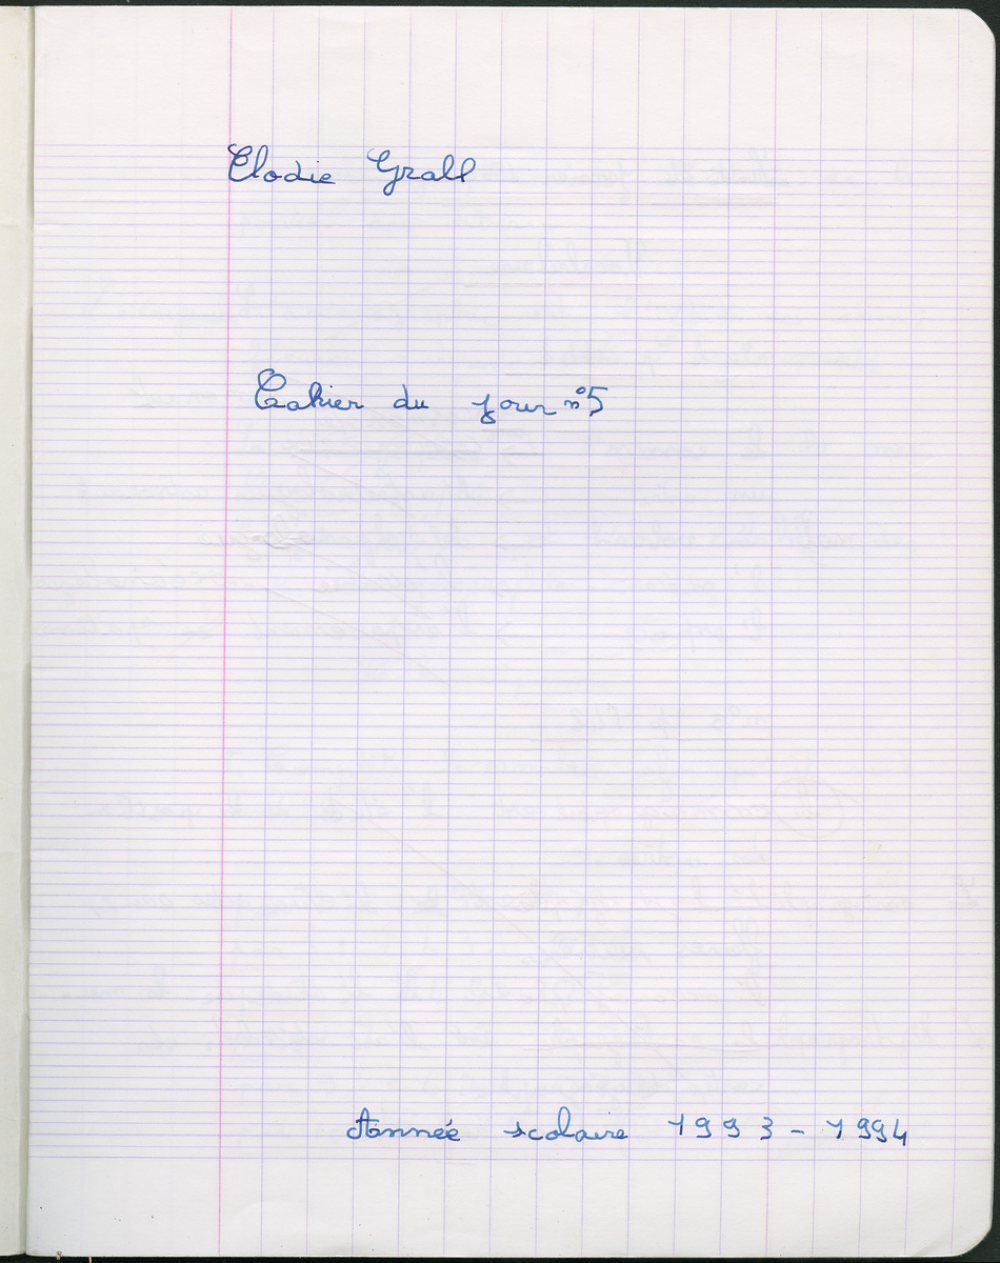 Elodie Grall
Cahier du jour n°5
Année scolaire 1993-1994